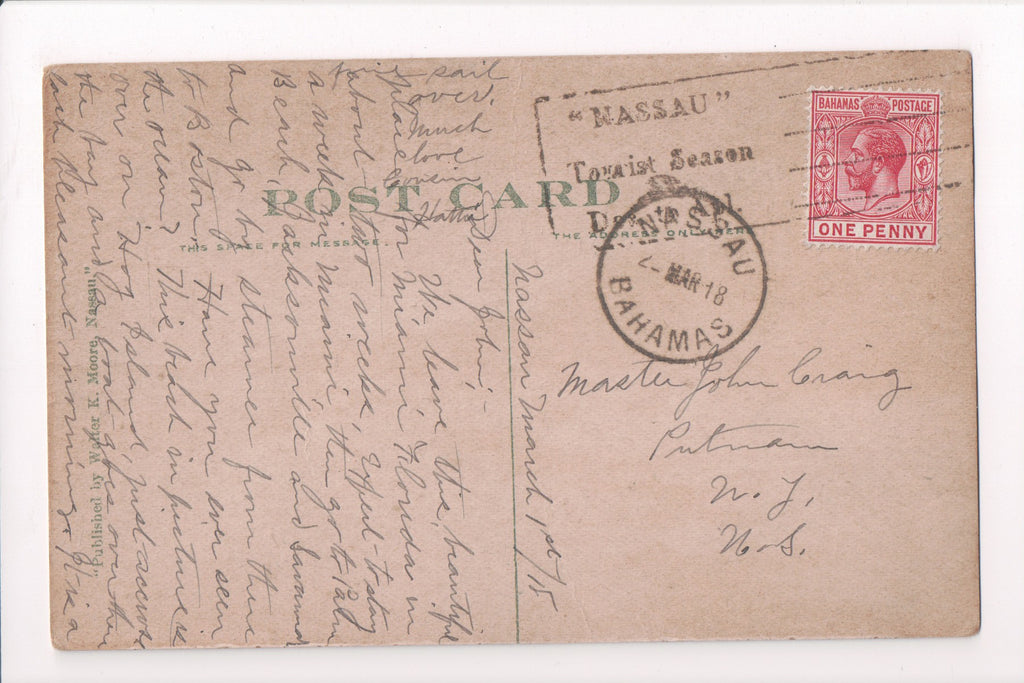 POST CARD
THIS SPACE FOR MESSAGE.
THE ADDRESS ONLY HERE
"NASSAU"
Tourist Season
BAHAMAS POSTAGE
ONE PENNY
NASSAU
2- MAR 18
BAHAMAS
Master John Craig
Putnam
N. Y,
U. S.
Nassau March 1st/18
Dear John;-
We leave this beautiful
for Miami Florida in
about two weeks, expect to stay
a week in Miami then go to Palm
Beach, Jacksonville and Savannah
and go by steamer from there
to Boston. Have you ever seen
the ocean? This beach in picture is
over on Hog Island, just across
the bay and a boat goes over there
each pleasant morning. It is a
sail
over.
Much
love
Cousin
Hattie
"Published by Walter K. Moore, Nassau."